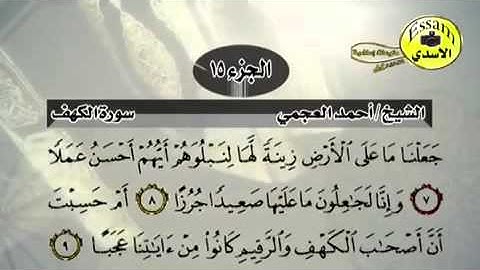 Essam
الاسدي
الجزء ١٥
الشيخ / أحمد العجمي
سورة الكهف
جَعَلْنَا مَا عَلَى ٱلْأَرْضِ زِينَةً لَّهَا لِنَبْلُوَهُمْ أَيُّهُمْ أَحْسَنُ عَمَلًا
٧ وَإِنَّا لَجَٰعِلُونَ مَا عَلَيْهَا صَعِيدًا جُرُزًا ٨ أَمْ حَسِبْتَ
أَنَّ أَصْحَٰبَ ٱلْكَهْفِ وَٱلرَّقِيمِ كَانُوا۟ مِنْ ءَايَٰتِنَا عَجَبًا ٩